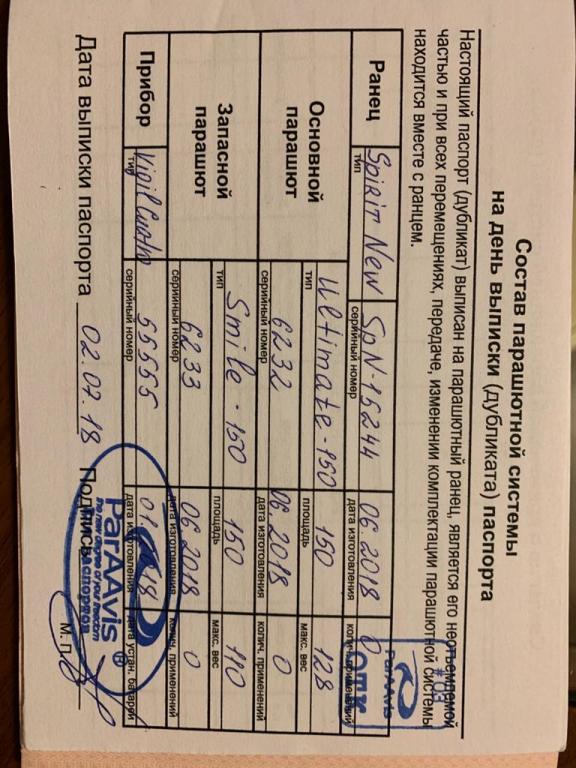 Состав парашютной системы
на день выписки (дубликата) паспорта
Настоящий паспорт (дубликат) выписан на парашютный ранец, является его неотъемлемой
частью и при всех перемещениях, передаче, изменении комплектации парашютной системы
находится вместе с ранцем.
Ранец Spirit New SpN-15244 06.2018 0
тип серийный номер дата изготовления колич. применений
#03
ParAAvis
ОТК
Основной парашют Ultimate-150 150 128
тип площадь макс. вес
6232 06.2018 0
серийный номер дата изготовления колич. применений
Запасной парашют Smile-150 150 110
тип площадь макс. вес
6233 06.2018 0
серийный номер дата изготовления колич. применений
Прибор Vigil Cuatro 55555 01. 18
тип серийный номер дата изготовления дата устан. батареи
Дата выписки паспорта 02.07.18 Подпись М. П.
ParAAvis ®
the new degree of your freedom
паспортов